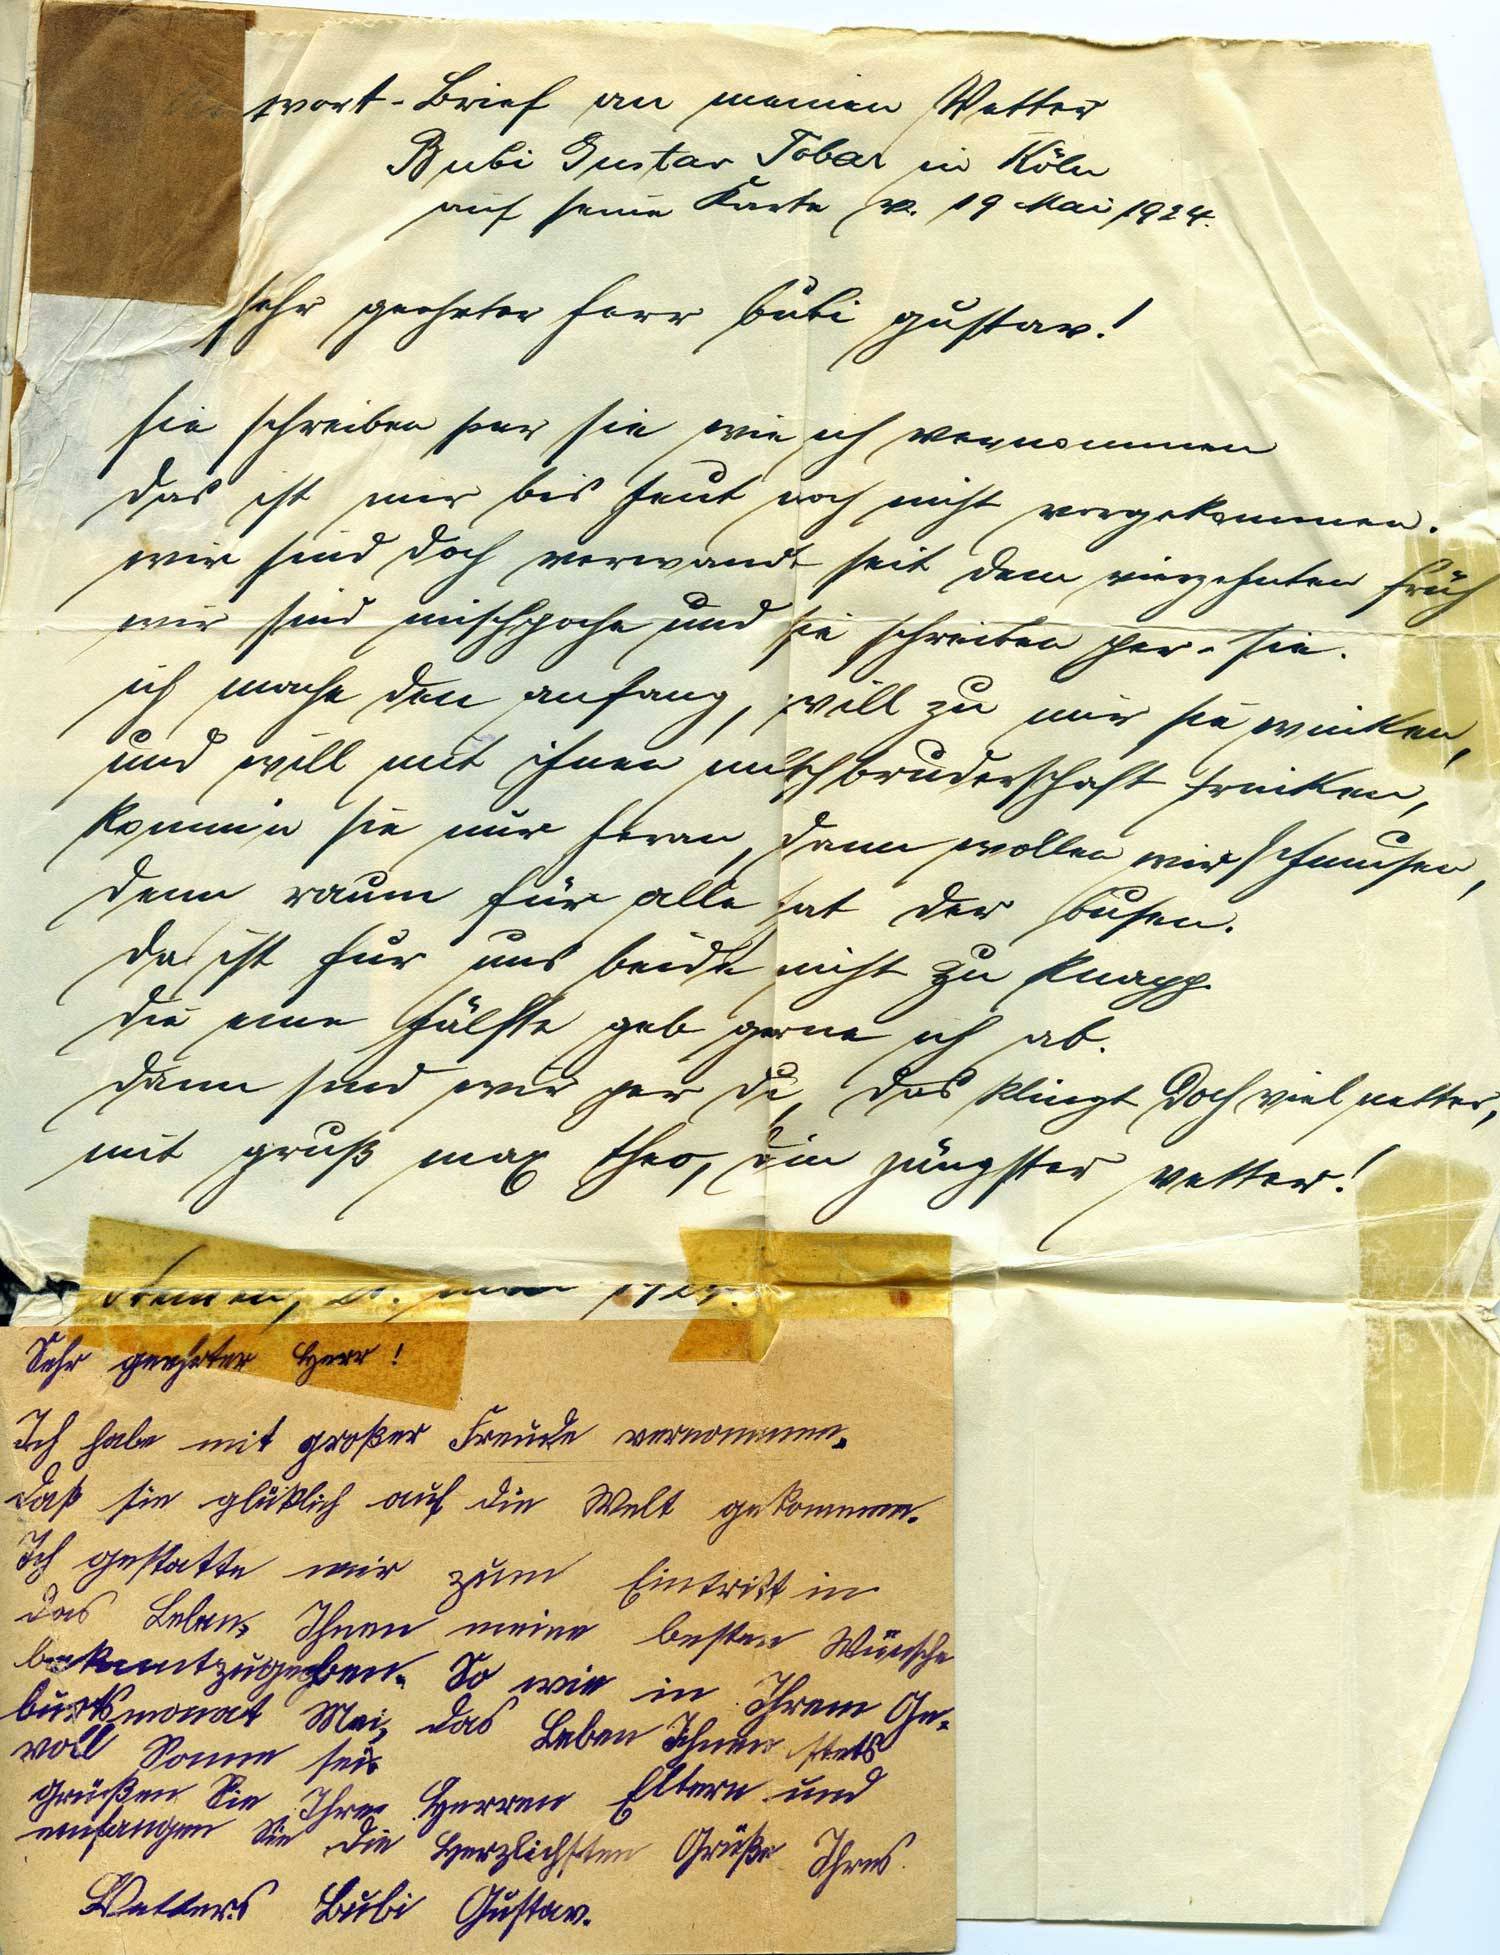 wort-Brief an meinen Vetter
Bubi Gustav Tobar in Köln
auf seine Karte v. 19 Mai 1924.
sehr geehrter herr bubi gustav!
sie schreiben per sie wie ich vernommen
das ist mir bis heut noch nicht vorgekommen.
wir sind doch verwandt seit dem vierzehnten früh
wir sind mischpoche und sie schreiben per-sie.
ich mache den anfang, will zu mir sie winken,
und will mit ihnen milchbruderschaft trinken,
kommen sie nur heran, dann wollen wir schmusen,
denn raum für alle hat der busen.
da ist für uns beide nicht zu knapp.
die eine hälfte geb gerne ich ab.
dann sind wir per du, das klingt doch viel netter,
mit gruß max theo, dein jüngster vetter!
Sehr geehrter Herr!
Ich habe mit großer Freude vernommen.
daß sie glüklich auf die Welt gekommen.
Ich gestatte mir zum Eintritt in
das Leben, Ihnen meine besten Wünsche
bekanntzugeben. So wie in Ihrem Ge-
burtsmonat Mai, das Leben Ihnen stets
voll Sonne sei.
grüßen Sie Ihre Herren Eltern und
emfangen Sie die herzlichsten Grüße Ihres
Vetters Bubi Gustav.